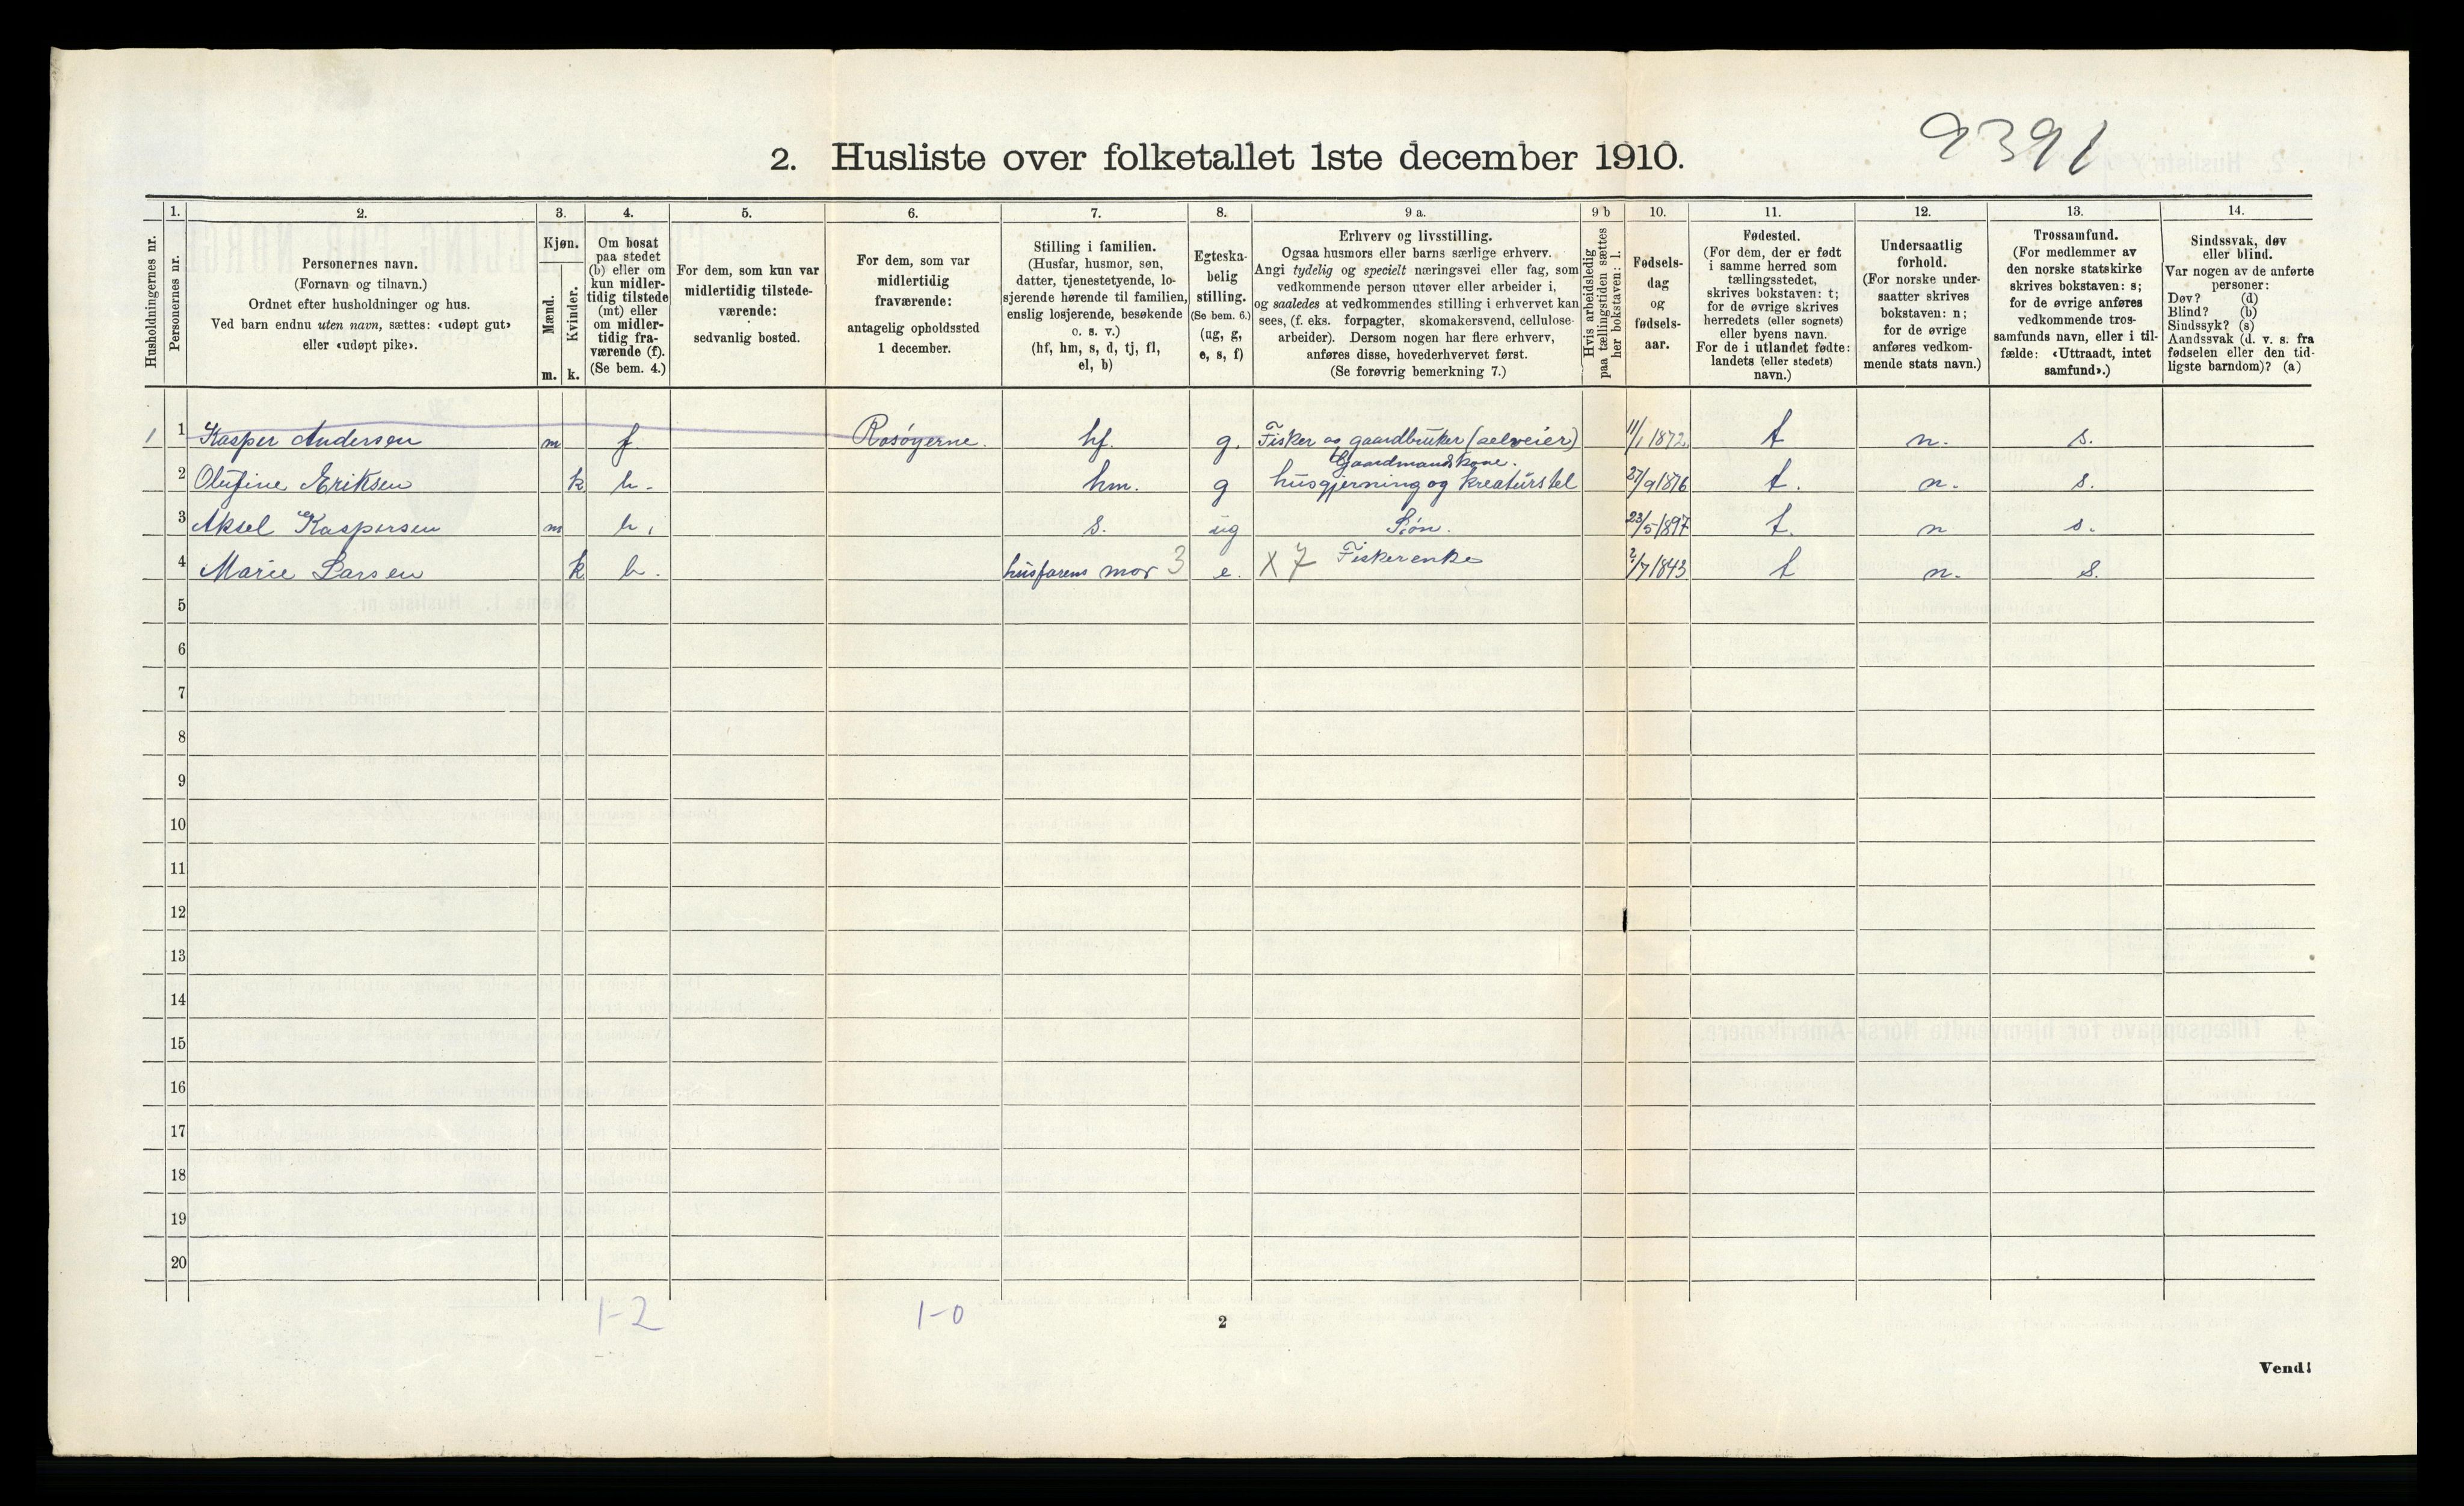 9391
2. Husliste over folketallet 1ste december 1910.
Husholdningernes nr.
1.
Personernes nr.
2.
Personernes navn.
(Fornavn og tilnavn.)
Ordnet efter husholdninger og hus.
Ved barn endnu uten navn, sættes: «udøpt gut»
eller «udøpt pike».
3.
Kjøn.
Mænd.
Kvinder.
m. k.
4.
Om bosat
paa stedet
(b) eller om
kun midler-
tidig tilstede
(mt) eller
om midler-
tidig fra-
værende (f).
(Se bem. 4.)
5.
For dem, som kun var
midlertidig tilstede-
værende:
sedvanlig bosted.
6.
For dem, som var
midlertidig
fraværende:
antagelig opholdssted
1 december.
7.
Stilling i familien.
(Husfar, husmor, søn,
datter, tjenestetyende, lo-
sjerende hørende til familien,
enslig losjerende, besøkende
o. s. v.)
(hf, hm, s, d, tj, fl,
el, b)
8.
Egteska-
belig
stilling.
(Se bem. 6.)
(ug, g,
e, s, f)
9 a.
Erhverv og livsstilling.
Ogsaa husmors eller barns særlige erhverv.
Angi tydelig og specielt næringsvei eller fag, som
vedkommende person utøver eller arbeider i,
og saaledes at vedkommendes stilling i erhvervet kan
sees, (f. eks. forpagter, skomakersvend, cellulose-
arbeider). Dersom nogen har flere erhverv,
anføres disse, hovederhvervet først.
(Se forøvrig bemerkning 7.)
9 b
Hvis arbeidsledig
paa tællingstiden sættes
her bokstaven: l.
10.
Fødsels-
dag
og
fødsels-
aar.
11.
Fødested.
(For dem, der er født
i samme herred som
tællingsstedet,
skrives bokstaven: t;
for de øvrige skrives
herredets (eller sognets)
eller byens navn.
For de i utlandet fødte:
landets (eller stedets)
navn.)
12.
Undersaatlig
forhold.
(For norske under-
saatter skrives
bokstaven: n;
for de øvrige
anføres vedkom-
mende stats navn.)
13.
Trossamfund.
(For medlemmer av
den norske statskirke
skrives bokstaven: s;
for de øvrige anføres
vedkommende tros-
samfunds navn, eller i til-
fælde: «Uttraadt, intet
samfund».)
14.
Sindssvak, døv
eller blind.
Var nogen av de anførte
personer:
Døv? (d)
Blind? (b)
Sindssyk? (s)
Aandssvak (d. v. s. fra
fødselen eller den tid-
ligste barndom)? (a)
1 1 Kasper Andersen m f. Rosøyerne. hf. g. Fisker og gaardbruker (selveier) 11/1 1872 t n. s.
Gaardmandskone.
2 Olufine Eriksen k b. hm. g husgjerning og kreaturstel 27/9 1876 t. n. s.
3 Aksel Kaspersen m b. s. ug Søn. 23/5 1897 t. n s.
4 Marie Larsen k b. husfarens mor 3 e. X 7 Fiskerenke 2/7 1843 t n. s.
5
6
7
8
9
10
11
12
13
14
15
16
17
18
19
20
1-2 1-0
2
Vend!